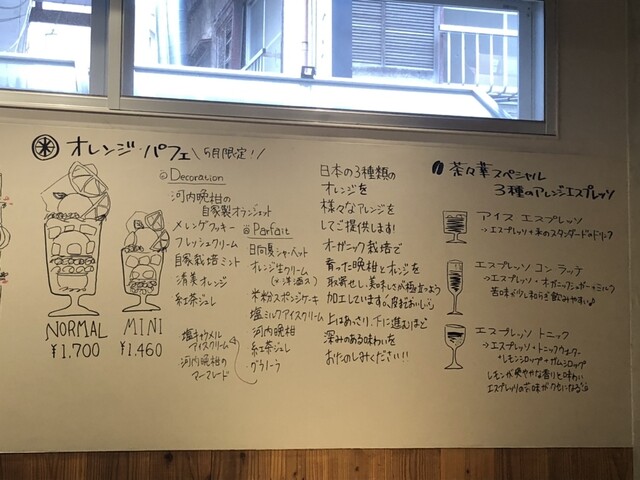 オレンジ・パフェ \5月限定!/
@Decoration
河内晩柑の
自家製オランジェット
メレンゲクッキー
フレッシュクリーム
自家栽培ミント
清美オレンジ
紅茶ジュレ
塩キャラメル
アイスクリーム
河内晩柑の
マーマレード
@Parfait
日向夏シャーベット
オレンジ生クリーム
(※洋酒入)
米粉スポンジケーキ
塩ミルクアイスクリーム
河内晩柑
紅茶ジュレ
グラノーラ
NORMAL
¥1,700
MINI
¥1,460
日本の3種類の
オレンジを
様々なアレンジを
してご提供します!
オーガニック栽培で
育った晩柑とオレンジを
取寄せし、美味しさが
加工しています。
上はあっさり、下に進むほど
深みのある味わいを
おたのしみください!!
茶々華スペシャル
3種のアレンジエスプレッソ
アイス エスプレッソ
→エスプレッソ+氷のスタンダードドリンク
エスプレッソ コン ラッテ
→エスプレッソ+オーガニックシュガー+ミルク
苦味が少し和らぎ飲みやすい♪
エスプレッソ トニック
→エスプレッソ+トニックウォーター
+レモンシロップ+ガムシロップ
レモンが爽やかな香りと味わい
エスプレッソの苦味がクセになる